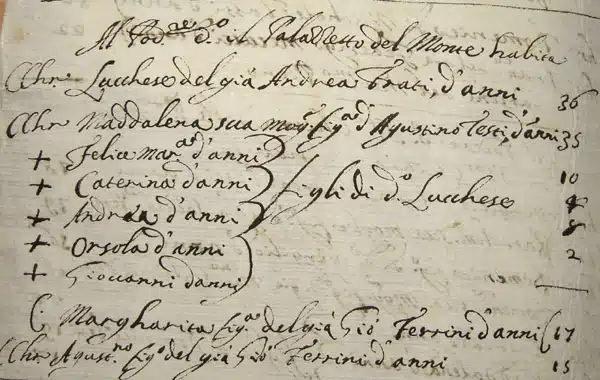 Al Pod.re d.o il Palazzetto del Monte habita
CChr. Lucchese del già Andrea Frati, d'anni 36
CChr Maddalena sua mog. fig.a d' Agustino Testi, d'anni 35
+ Felice Mar.a d'anni 10
+ Caterina d'anni figli di d.o Lucchese
+ Andrea d'anni
+ Orsola d'anni 2
+ Giovanni d'anni —
C. Margharita fig.a del già Gio Ferrini d'anni 17
CChr. Agust.no fig.o del già Gio Ferrini d'anni 15